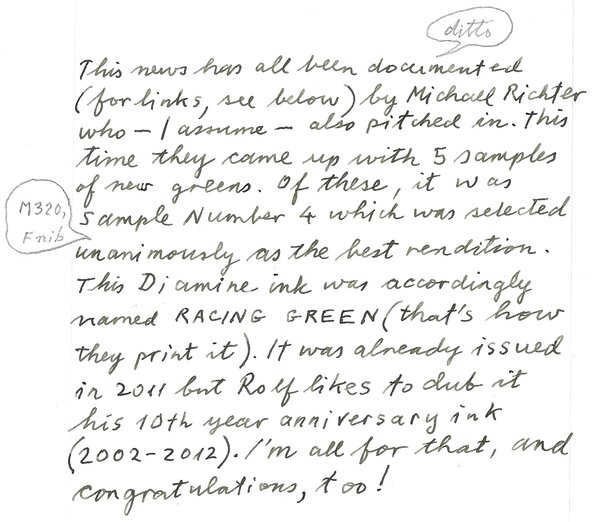 ditto
This news has all been documented
(for links, see below) by Michael Richter
who – I assume – also pitched in. This
time they came up with 5 samples
of new greens. Of these, it was
M320,
F nib
sample Number 4 which was selected
unanimously as the best rendition.
This Diamine ink was accordingly
named RACING GREEN (that's how
they print it). It was already issued
in 2011 but Rolf likes to dub it
his 10th year anniversary ink
(2002-2012). I'm all for that, and
congratulations, too!